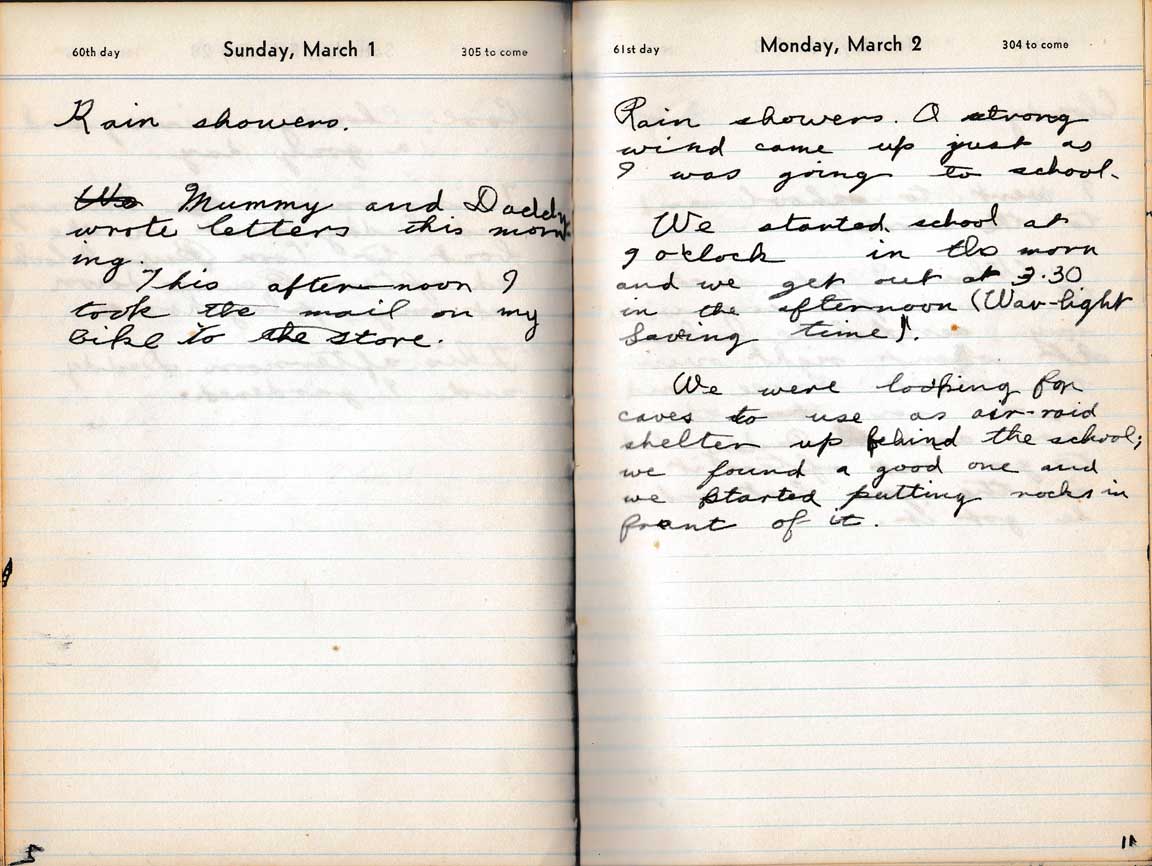 60th day Sunday, March 1 305 to come
Rain showers.
We Mummy and Daddy
wrote letters this morn-
ing.
This after-noon I
took the mail on my
bike to the store.
61st day Monday, March 2 304 to come
Rain showers. A strong
wind came up just as
I was going to school.
We started school at
9 o'clock in the morn
and we get out at 3.30
in the afternoon (War-light
Saving time).
We were looking for
caves to use as air-raid
shelter up behind the school;
we found a good one and
we started putting rocks in
front of it.